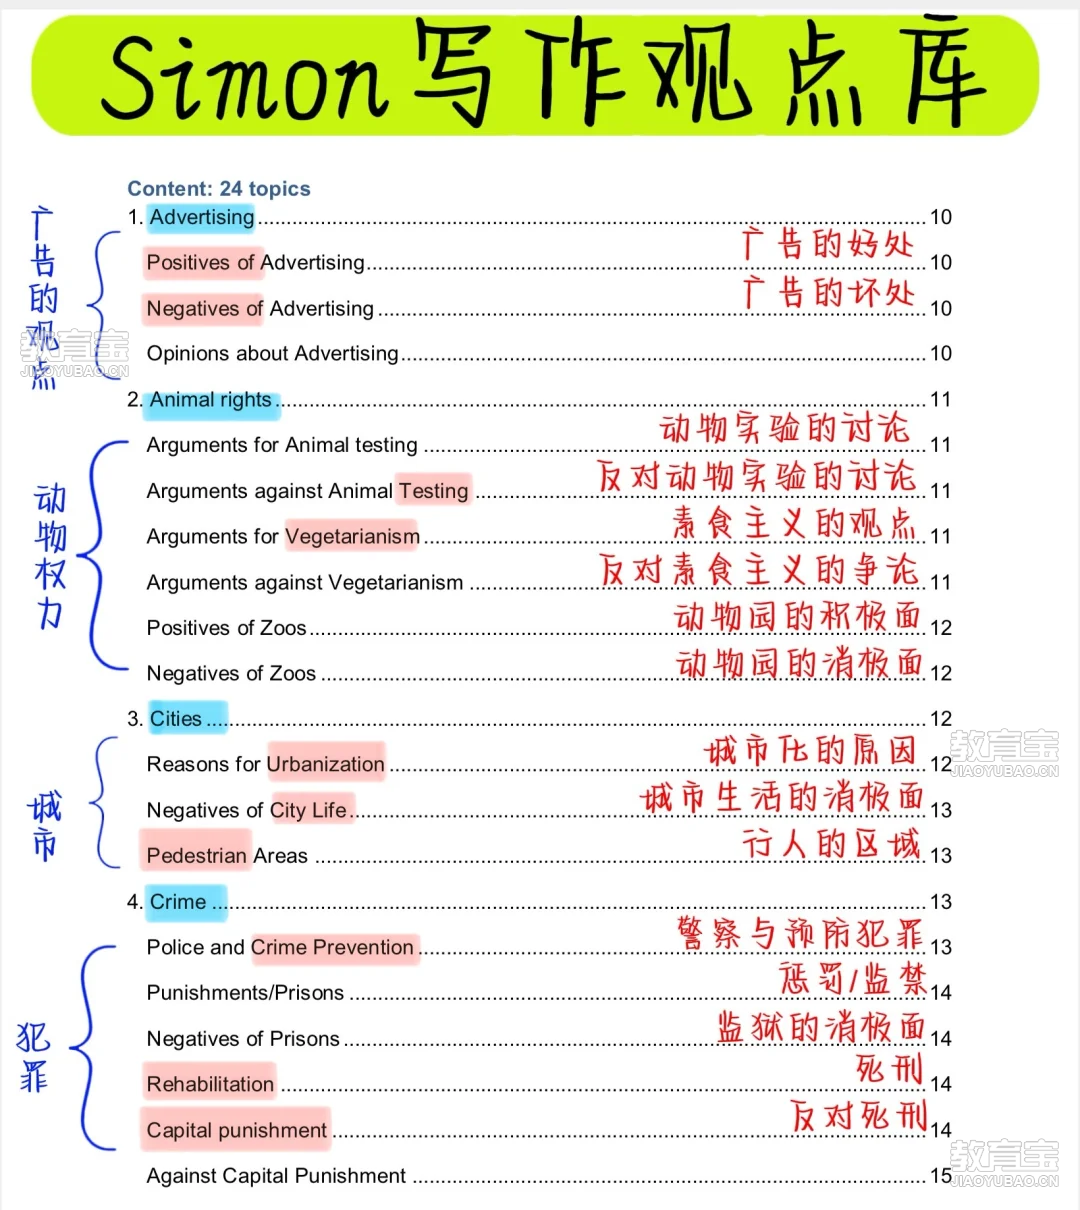 Simon写作观点库
Content: 24 topics
广告的观点
1. Advertising 10
Positives of Advertising 10 广告的好处
Negatives of Advertising 10 广告的坏处
Opinions about Advertising 10
教育宝
JIAOYUBAO.CN
2. Animal rights 11
动物权力
Arguments for Animal testing 11 动物实验的讨论
Arguments against Animal Testing 11 反对动物实验的讨论
Arguments for Vegetarianism 11 素食主义的观点
Arguments against Vegetarianism 11 反对素食主义的争论
Positives of Zoos 12 动物园的积极面
Negatives of Zoos 12 动物园的消极面
3. Cities 12
城市
Reasons for Urbanization 12 城市化的原因
教育宝
JIAOYUBAO.CN
Negatives of City Life 13 城市生活的消极面
Pedestrian Areas 13 行人的区域
4. Crime 13
犯罪
Police and Crime Prevention 13 警察与预防犯罪
Punishments/Prisons 14 惩罚/监禁
Negatives of Prisons 14 监狱的消极面
Rehabilitation 14 死刑
Capital punishment 14 反对死刑
Against Capital Punishment 15
教育宝
JIAOYUBAO.CN